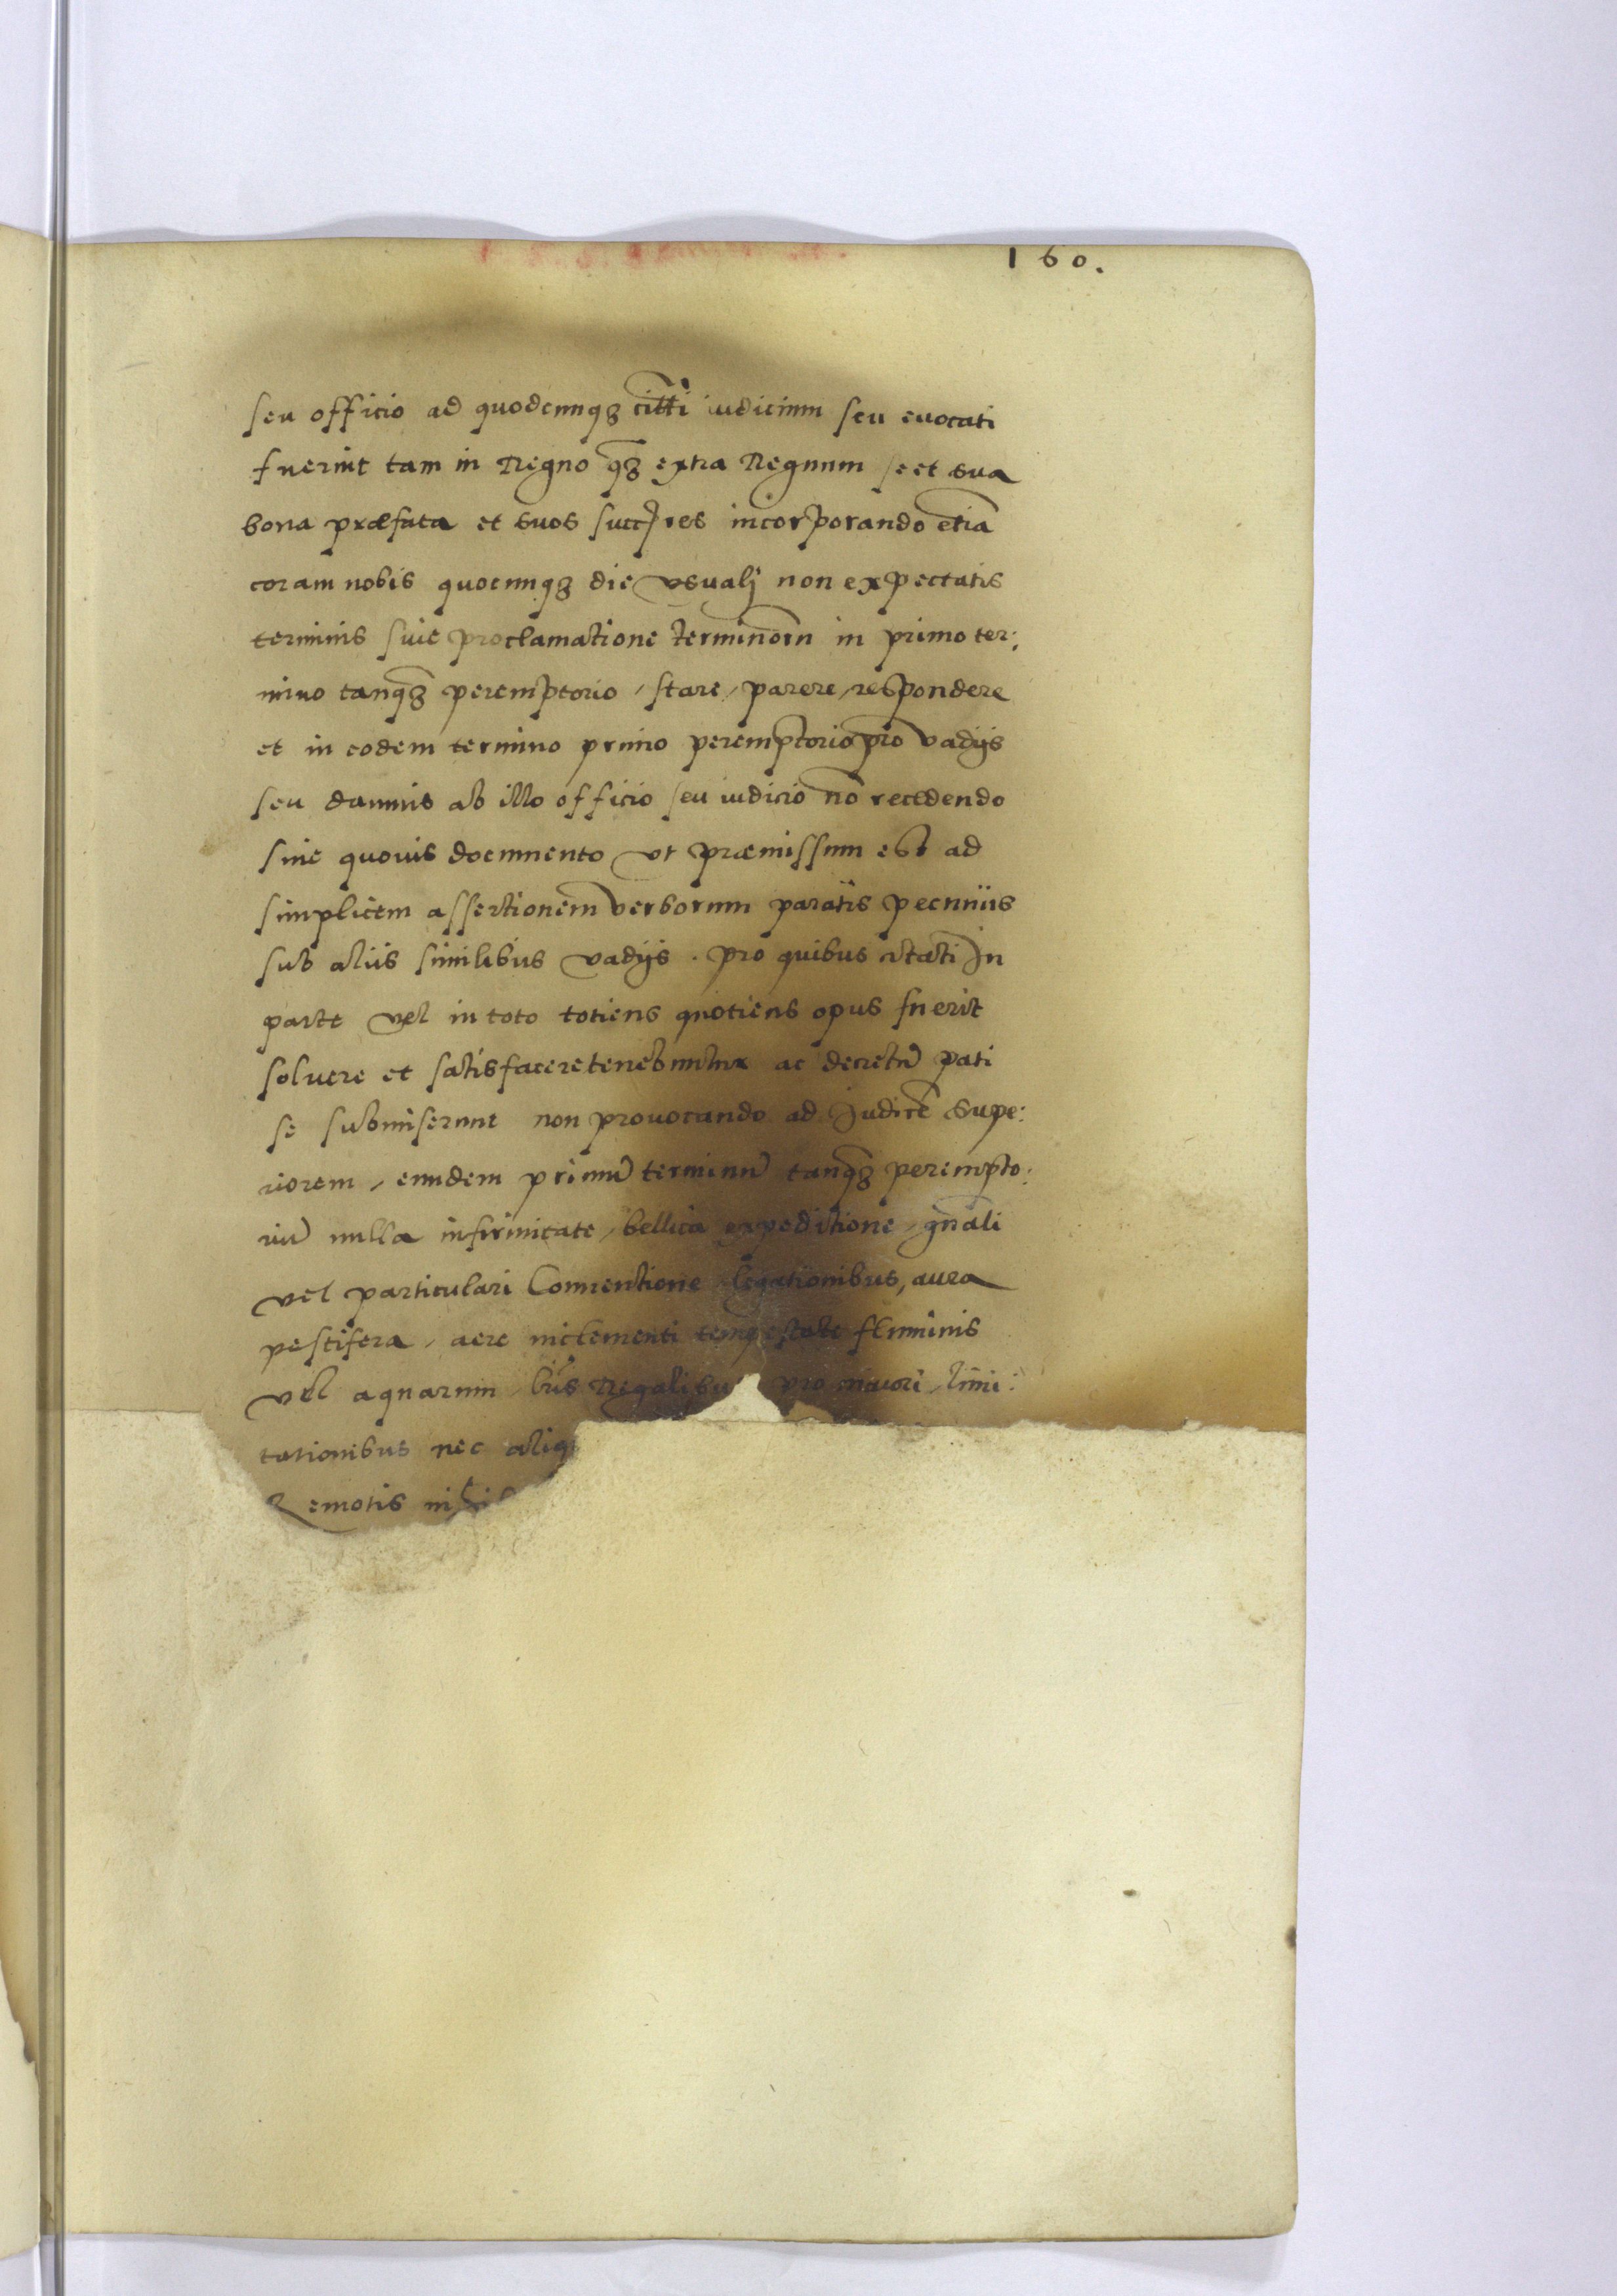 160.
seu officio ad quodcunqꝫ citti iudicium seu euocati
fuerint tam in Regno qꝫ extra Regnum se et sua
bona præfata et suos succres incorporando etia
coram nobis quocunqꝫ die vsualj non expectatis
terminis siue proclamatione terminorn in primo ter:
mino tanqꝫ peremptorio, stare, parere, respondere
et in eodem termino primo peremptorio pro vadijs
seu damnis ab illo officio seu iudicio no recedendo
sine quouis documento vt præmissum est ad
simplicem assertionem verborum paratis pecuniis
sub aliis similibus vadijs. pro quibus citati In
parte vel in toto totiens quotiens opus fuerit
soluere et satisfacere tenebuntur ac decretu pati
se submiserunt non prouocando ad Judice supe:
riorem, eundem primu terminu tanqꝫ perempto:
riu nulla infirmitate, bellica expeditione, gnali
vel particulari Conuentione legationibus, aura
pestifera, aere inclementi tempestate fluminis
vel aquarum lris Regalibus pro maiori, limi:
tationibus nec aliq
Remotis